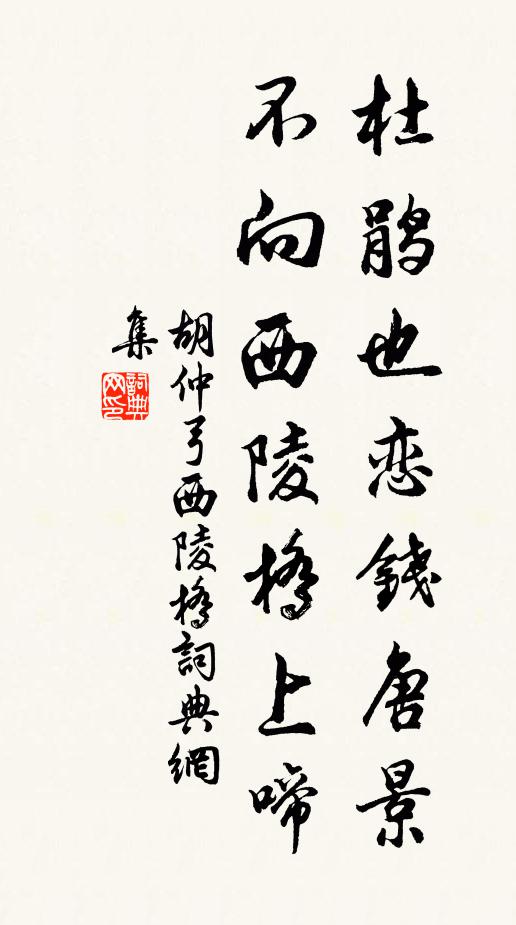 杜鹃也恋錢唐景
不向西陵橋上啼
胡仲弓西陵橋詞典網
集
詞典网印